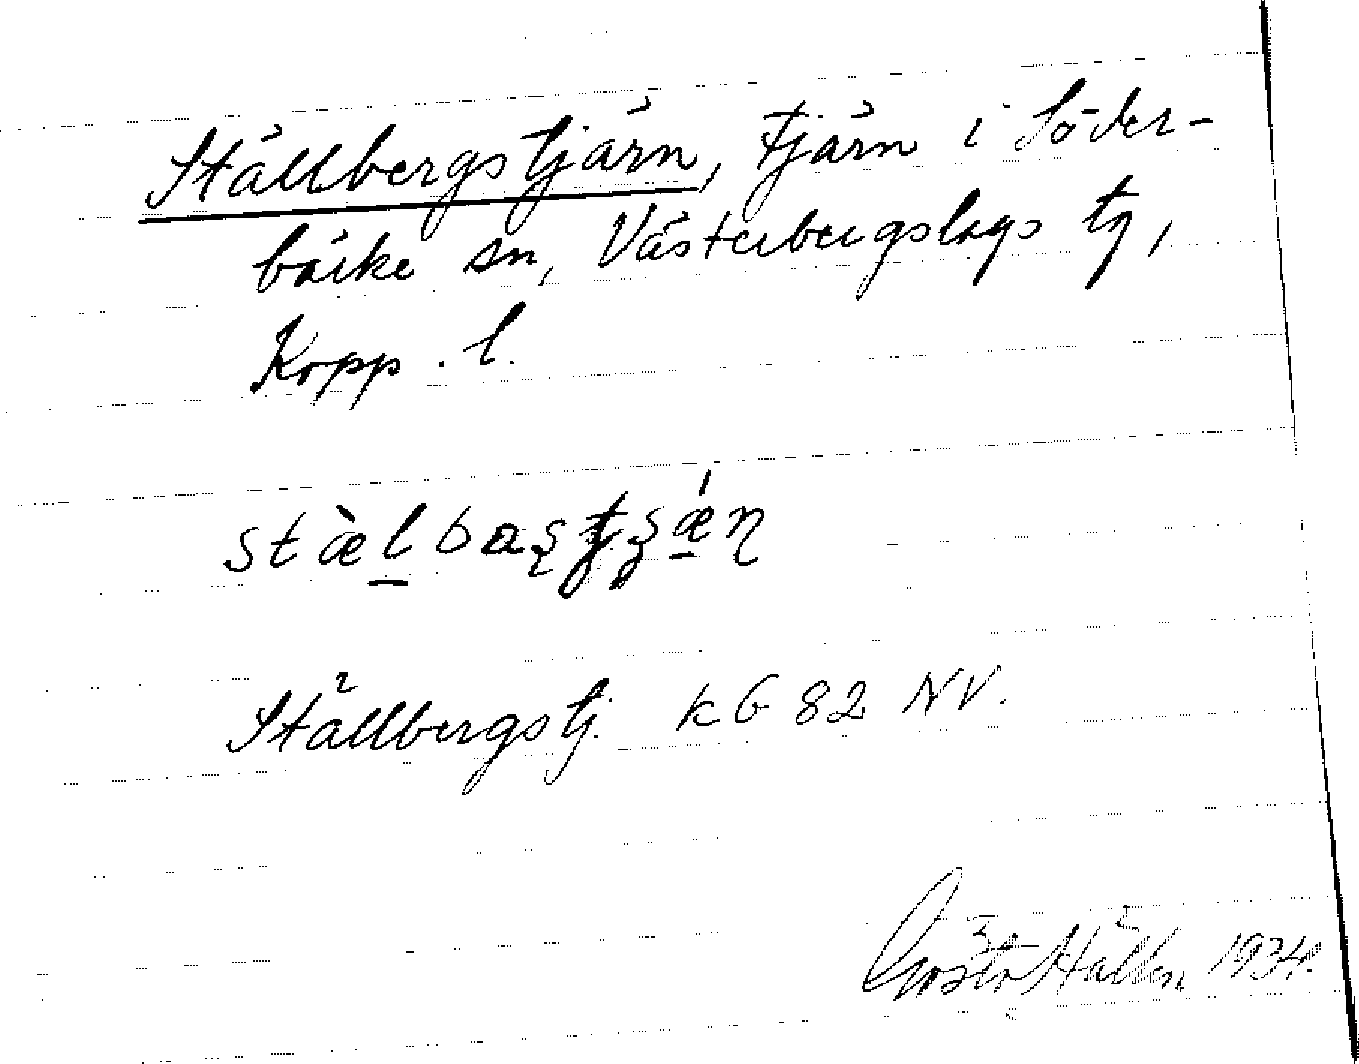 Ställbergstjärn, tjärn i Söder-
bärke sn, Västerbergslags tg,
Kopp. l.
stæ̀l̠baʂtʂǽ̠ɳ
Ställbergstj. kG 82 NV.
Gösta Hällen 1934.